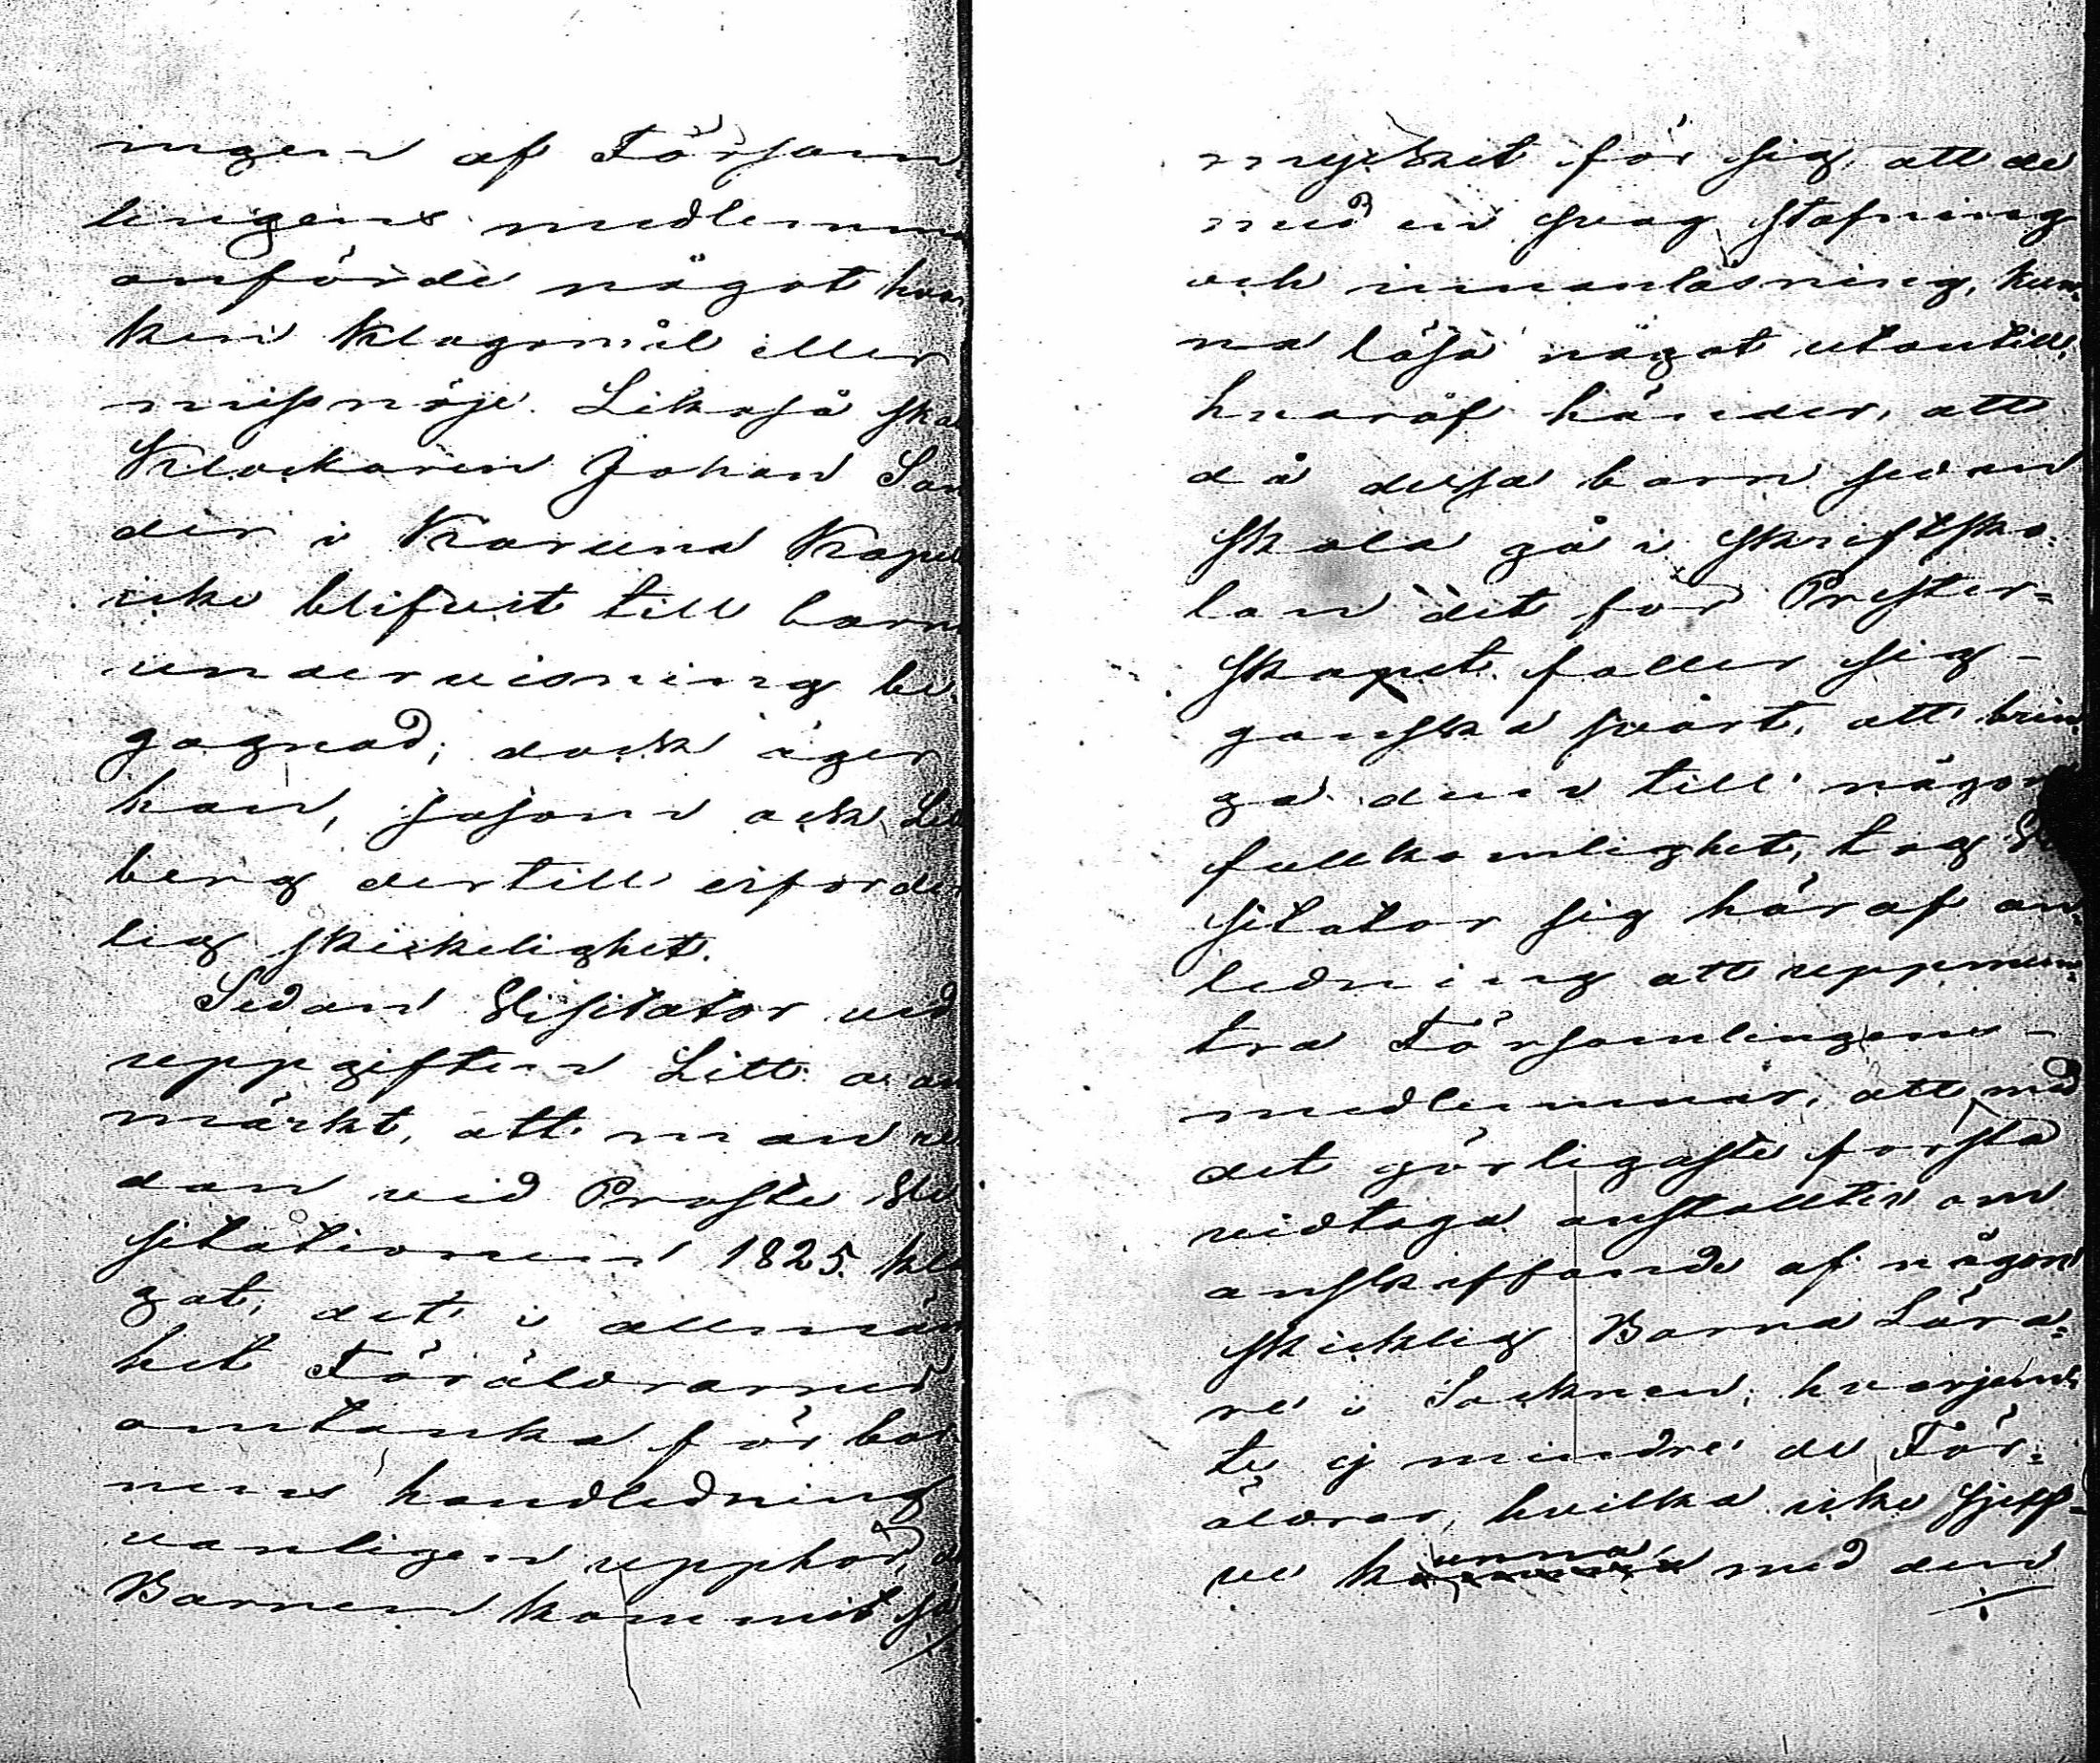 ingen af Försam
lingens medlemma
anförde något hvar
ken Klagomål eller
missnöje. Likaså ska
Klockaren Johan San
der i Karuna Kapel
icke blifvit till barn
undervisning be
gagnad; dock äger
han, såsom ock Led
berg dertill erforder
lig skickelighet.
Sedan Visitator vid
uppgiften Litt. a. an
märkt, att man re
dan vid Proste Vi
sitationen 1825. kla
gat, det i allmän
het Föräldrarnes
omtanka för bar
nens handledning
vanligen upphörd, d
Barnen kommit så
mycket för sig, att de
med en svag stafning
och innanläsning, kun
na läsa något utantill,
hvaraf händer, att
då dessa barn sedan
skola gå i skriftsko
lan det för Prester=
skapet faller sig -
ganska svårt, att brin
ga dem till någon
fullkomlighet, tog Vi
sitator sig häraf an
ledning att uppmun
tra Församlingens -
medlemmar, att med
det görligaste första
vidtaga anstallter om
anskaffande af någon
skicklig Barna Lära=
re i Socknen, hvarjem
te ej mindre de För=
äldrar, hvilka icke sjelf=
ve kunna med den